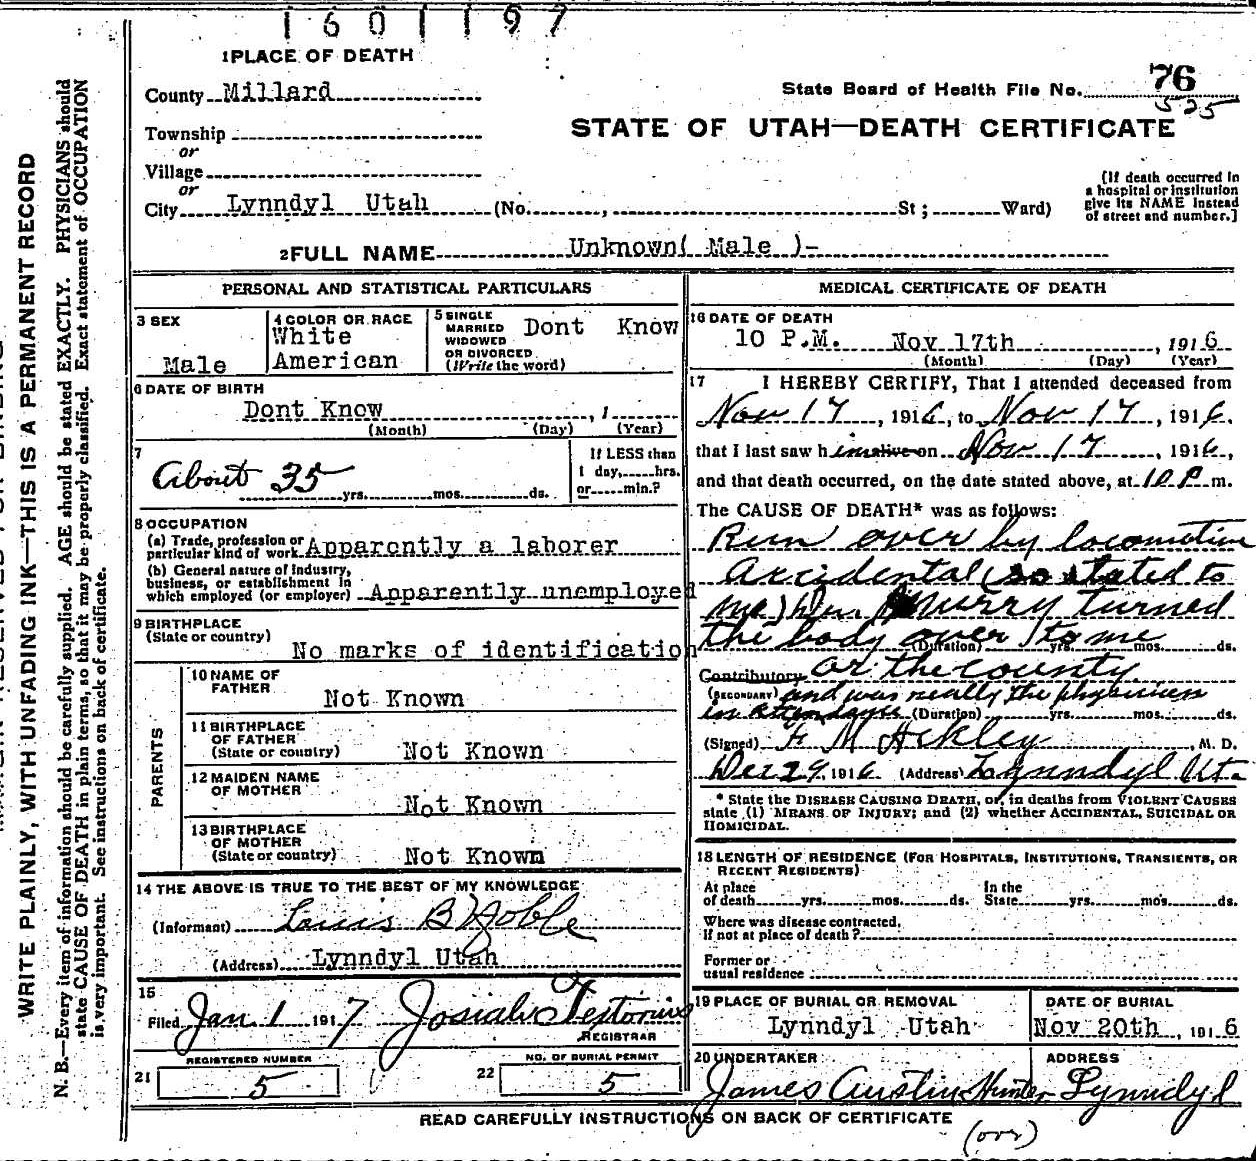 1601197
1 PLACE OF DEATH
County Millard
State Board of Health File No. 76
525
Township
STATE OF UTAH—DEATH CERTIFICATE
or
Village
or
City Lynndyl Utah (No. , St ; Ward)
(If death occurred in
a hospital or institution
give its NAME instead
of street and number.]
2 FULL NAME Unknown( Male )-
PERSONAL AND STATISTICAL PARTICULARS
3 SEX
Male
4 COLOR OR RACE
White
American
5 SINGLE
MARRIED
WIDOWED
OR DIVORCED
(Write the word)
Dont Know
6 DATE OF BIRTH
Dont Know , 1
(Month) (Day) (Year)
7
About 35
yrs. mos. ds.
If LESS than
1 day, hrs.
or min.?
8 OCCUPATION
(a) Trade, profession or
particular kind of work Apparently a laborer
(b) General nature of industry,
business, or establishment in
which employed (or employer) Apparently unemployed
9 BIRTHPLACE
(State or country)
No marks of identification
PARENTS
10 NAME OF
FATHER
Not Known
11 BIRTHPLACE
OF FATHER
(State or country) Not Known
12 MAIDEN NAME
OF MOTHER
Not Known
13 BIRTHPLACE
OF MOTHER
(State or country) Not Known
14 THE ABOVE IS TRUE TO THE BEST OF MY KNOWLEDGE
(Informant) Louis B Noble
(Address) Lynndyl Utah
15
Filed Jan 1 1917 Josiah
REGISTRAR
REGISTERED NUMBER
21 5
NO. OF BURIAL PERMIT
22 5
MEDICAL CERTIFICATE OF DEATH
16 DATE OF DEATH
10 P.M. Nov 17th , 1916
(Month) (Day) (Year)
17 I HEREBY CERTIFY, That I attended deceased from
Nov 17 , 1916, to Nov 17 , 1916.
that I last saw h im alive on Nov 17 , 1916,
and that death occurred, on the date stated above, at 10 P m.
The CAUSE OF DEATH* was as follows:
Run over by locomotive
Accidental (so stated to
me) Murry turned
the body over to me
(Duration) yrs. mos. ds.
Contributory or the county
(SECONDARY) and was really the physician
in attendance (Duration) yrs. mos. ds.
(Signed) F M Ackley , M. D.
Dec 29, 1916 (Address) Lynndyl Ut.
* State the DISEASE CAUSING DEATH, or, in deaths from VIOLENT CAUSES
state (1) MEANS OF INJURY; and (2) whether ACCIDENTAL, SUICIDAL OR
HOMICIDAL.
18 LENGTH OF RESIDENCE (FOR HOSPITALS, INSTITUTIONS, TRANSIENTS, OR
RECENT RESIDENTS)
At place
of death yrs. mos. ds.
In the
State yrs. mos. ds.
Where was disease contracted,
If not at place of death?
Former or
usual residence
19 PLACE OF BURIAL OR REMOVAL
Lynndyl Utah
DATE OF BURIAL
Nov 20th , 1916
20 UNDERTAKER
James Austin Hunter
ADDRESS
Lynndyl
READ CAREFULLY INSTRUCTIONS ON BACK OF CERTIFICATE
(over)
WRITE PLAINLY, WITH UNFADING INK—THIS IS A PERMANENT RECORD
N. B.—Every item of information should be carefully supplied. AGE should be stated EXACTLY. PHYSICIANS should
state CAUSE OF DEATH in plain terms, so that it may be properly classified. Exact statement of OCCUPATION
is very important. See instructions on back of certificate.